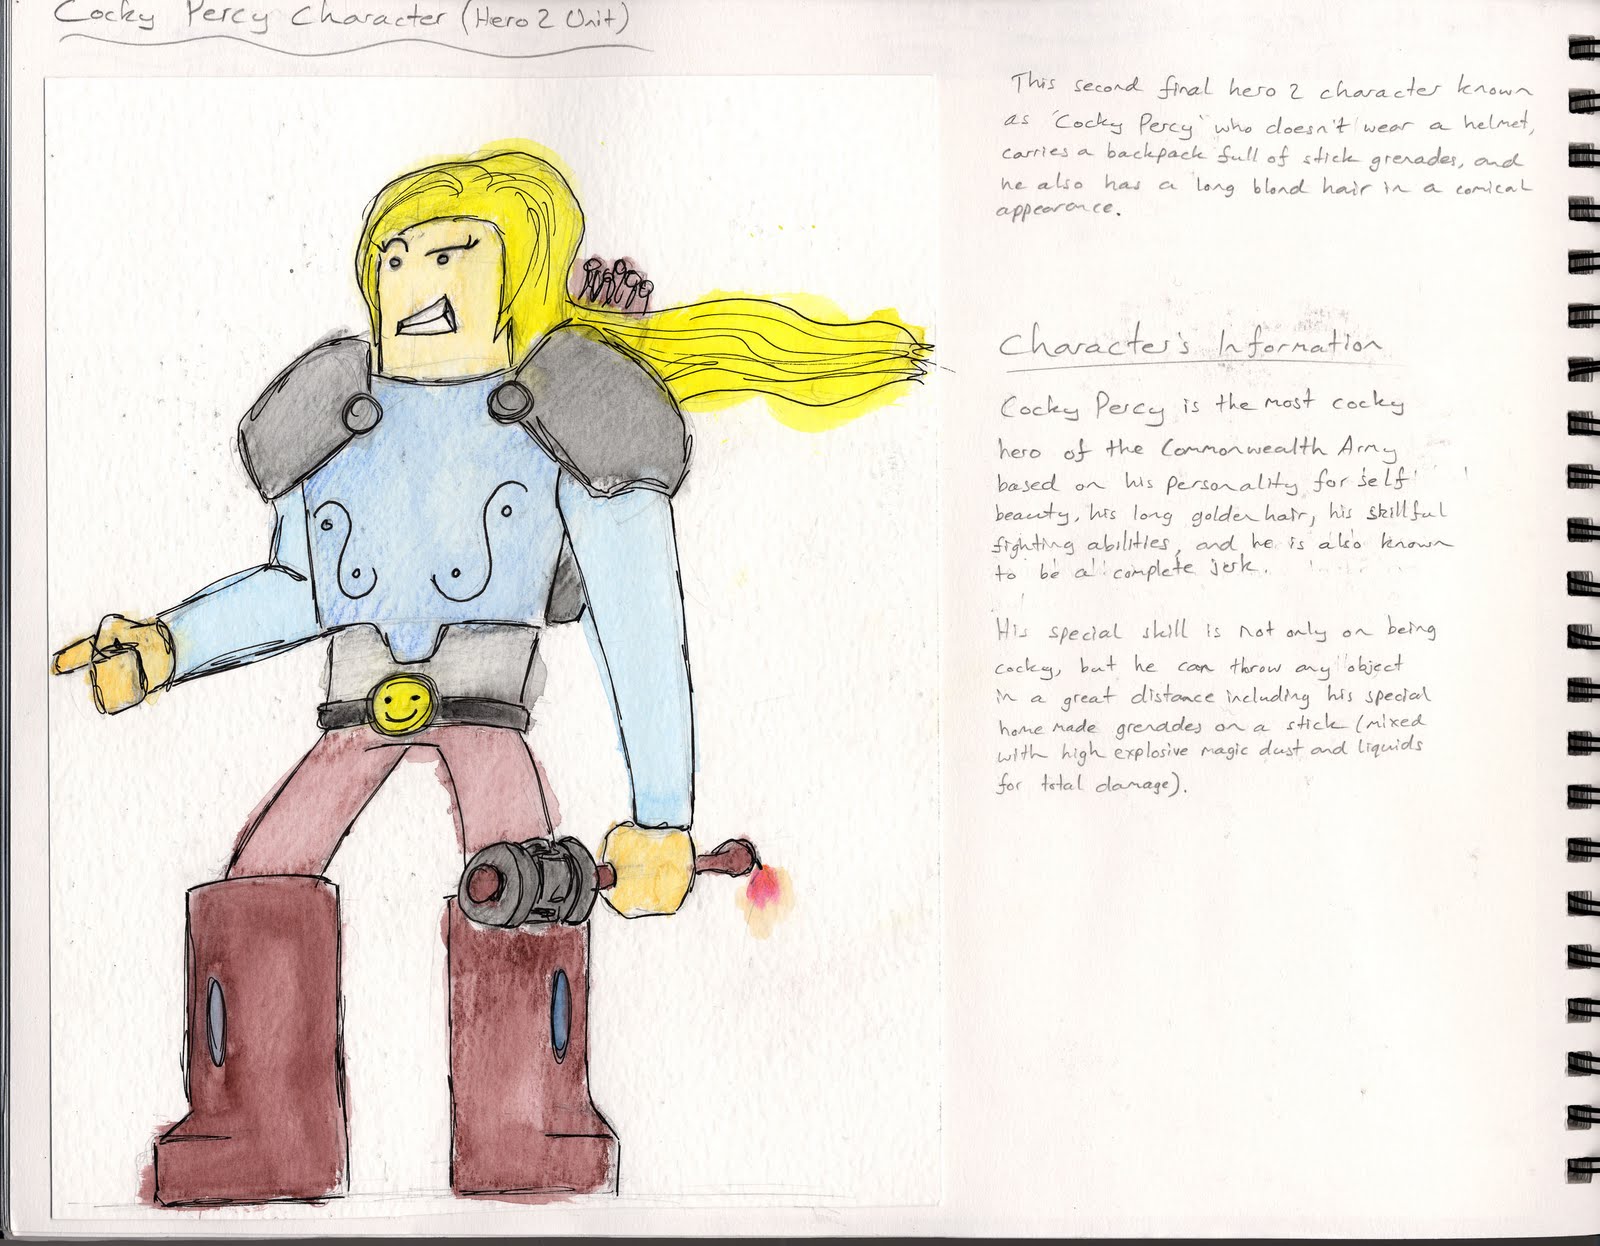 Cocky Percy Character (Hero 2 Unit)
This second final hero 2 character known
as 'Cocky Percy' who doesn't wear a helmet,
carries a backpack full of stick grenades, and
he also has a long blond hair in a comical
appearance.
Character's Information
Cocky Percy is the most cocky
hero of the Commonwealth Army
based on his personality for self
beauty, his long golden hair, his skillful
fighting abilities, and he is also known
to be a complete jerk.
His special skill is not only on being
cocky, but he can throw any object
in a great distance including his special
home made grenades on a stick (mixed
with high explosive magic dust and liquids
for total damage).